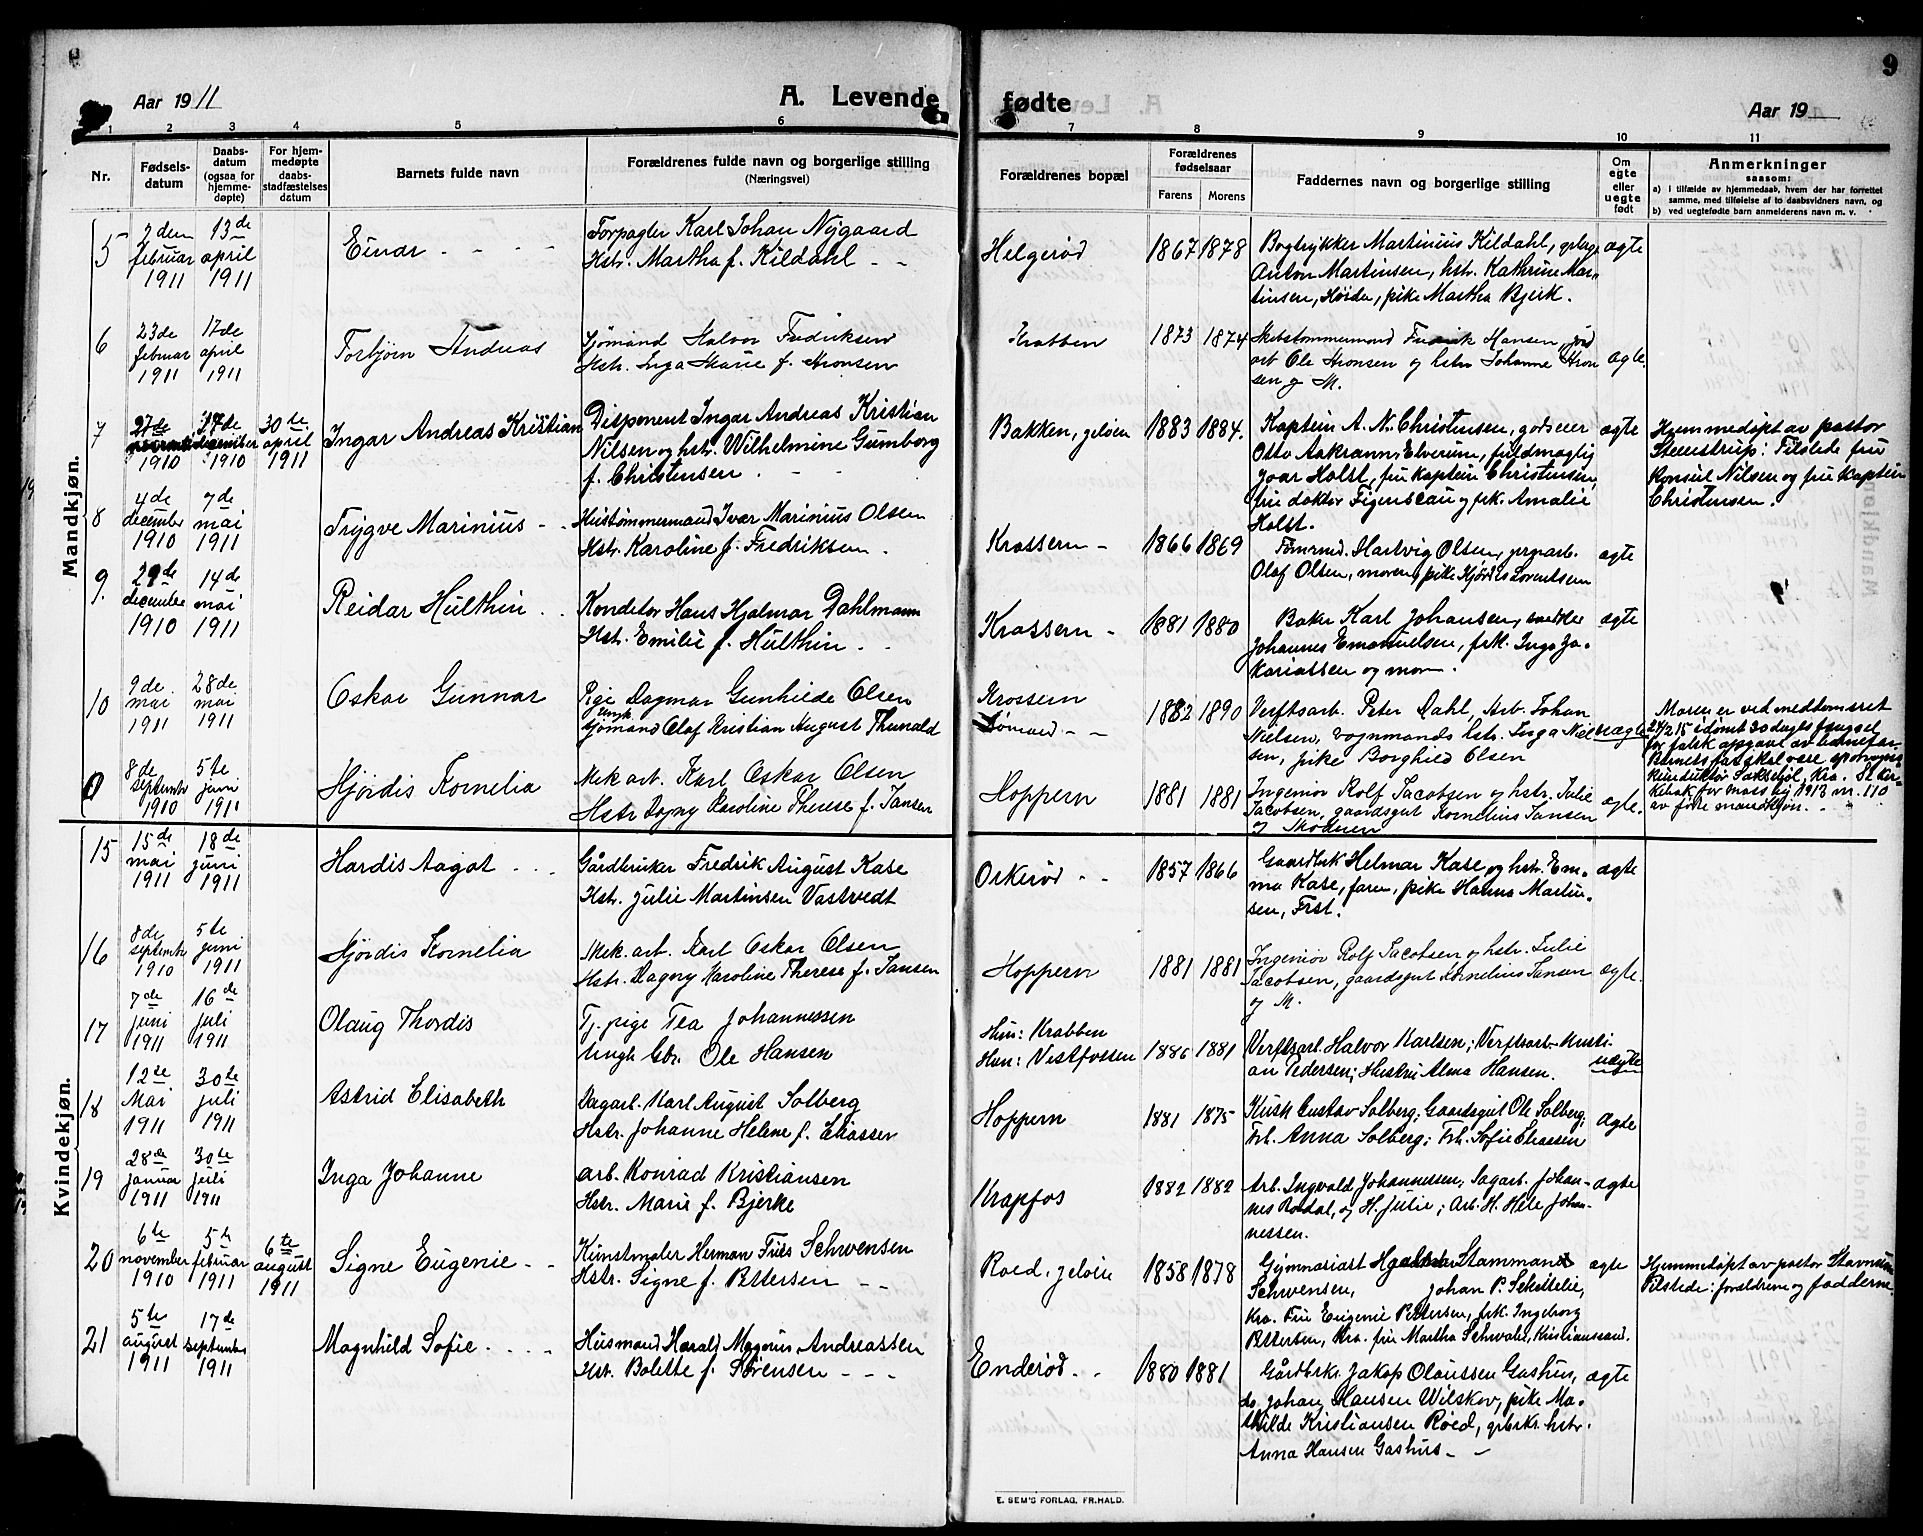 Aar 1911
A. Levende fødte
Aar 19
9
1 2 3 4 5 6 7 8 9 10 11
Nr.
Fødsels-
datum
Daabs-
datum
(ogsaa for
hjemme-
døpte)
For hjem-
medøpte
daabs-
stadfæstelses
datum
Barnets fulde navn
Forældrenes fulde navn og borgerlige stilling
(Næringsvei)
Forældrenes bopæl
Forældrenes
fødselsaar
Farens Morens
Faddernes navn og borgerlige stilling
Om
egte
eller
uegte
født
Anmerkninger
saasom:
a) I tilfælde av hjemmedaab, hvem der har forrettet
samme, med tilføielse af to daabsvidners navn, og
b) ved uegtefødte barn anmelderens navn m. v.
Mandkjøn.
5
2den
februar
1911
13de
april
1911
Einar
Forpagter Karl Johan Nygaard
Hstr. Martha f. Kildahl
Helgerød
1867 1878
Bogtrykker Martinius Kildahl,
Anton Martinsen, hstr. Kathrine Mar-
tinsen, pike Martha Bjerk.
ægte
6
23de
februar
1911
17de
april
1911
Torbjørn Andreas
Sjømand Halvor Fredriksen
Hstr. Inga Marie f. Aronsen
Krabben
1873 1874
Skibstømmermand Fredrik Hansen, jord
arb Ole Aronsen og hstr Johanne Aron
sen og M.
ægte.
7
27de
1910
17de
december
1910
30te
april
1911
Ingar Andreas Kristian
Disponent Ingar Andreas Kristian
Nilsen og hstr. Wilhelmine Gumborg
f. Christensen
Bakken, Jeløen
1883 1884.
Kaptein A. N. Christensen, godseier
Otto Aakrann, Elverum, fuldmægtig
Ivar Holst, fru kaptein Christensen,
fru doktor Figenscau og frk. Amalie
Holst.
ægte
Hjemmedøpt av pastor
Steenstrup: Tilstede fru
Konsul Nilsen og fru kaptein
Christensen.
8
4de
december
1910
7de
mai
1911
Trygve Marinius
Hustømmermand Ivar Marinius Olsen
Hstr. Karoline f. Fredriksen
Krossern
1866 1869
Tømrmd. Hartvig Olsen,
Olaf Olsen, moren, pike Hjørdis Lorentsen
ægte
9.
29de
december
1910
14de
mai
1911
Reidar Hulthin
Konditor Hans Hjalmar Dahlmann
Hstr. Emilie f. Hulthin
Krossern
1881 1880
Baker Karl Johansen, snedker
Johannes Emanuelsen, frk. Inga Za-
kariassen og mor.
ægte
10
9de
mai
1911
28de
mai
1911
Oskar Gunnar
Pige Dagmar Gunhilde Olsen
Ungk.
Sjømand Olaf Kristian August Thunald
Krossern
1882 1890
Verftsarb. Peter Dahl, Arb. Johan
Nielsen, vognmands hstr. Inga Niel
sen, pike Borghild Olsen
uægte
Moren er ved meddomsret
24/2 15 idømt 30 dages fængsel
for falsk opgave av barnefar.
Barnets far skal være sporveis-
konduktør Saksehøl, Kra. Se kir-
kebok for moss by 1913 nr. 110
av fødte mandkjøn.
8de
september
1910
5te
juni
1911
Hjørdis Kornelia
Mek arb. Karl Oskar Olsen
Hstr Dagny Karoline Therese f. Jansen
Hoppern
1881 1881
Ingeniør Rolf Jacobsen og hstr. Julie
Jacobsen, gaardsgut Kornelius Jansen
og Moderen
ægte.
Kvindekjøn.
15
15de
mai
1911
18de
juni
1911
Hardis Aagot
Gårdbruker Fredrik August Kase
Hstr. Julie Martinsen Vastvedt
Orkerød
1857 1866
Gaardbrk Helmar Kase og hstr. Em-
ma Kase, faren, pike Hanna Martin-
sen, Frst.
ægte
16
8de
september
1910
5te
juni
1911
Hjørdis Kornelia
Mek. arb. Karl Oskar Olsen
Hstr. Dagny Karoline Therese f. Jansen
Hoppern
1881 1881
Ingeniør Rolf Jacobsen og hstr. Julie
Jacobsen, gaardsgut Kornelius Jansen
og M.
ægte.
17
7de
juni
1911
16de
juli
1911
Olaug Thordis
Tj. pige Tea Johannessen
Ungk. Gbr. Ole Hansen
Hun: Krabben
Han: Vestfossen
1886 1881
Verftsarb. Halvor Karlsen; Verftsarb. Kristi-
an Pedersen; Hustru Alma Hansen.
uægte
18
12te
Mai
1911
30te
juli
1911
Astrid Elisabeth
Dagarb. Karl August Solberg
Hstr. Johanne Helene f. Eliassen
Hoppern
1881 1875
Kusk Gustav Solberg; Gaardsgut Ole Solberg;
Frk. Anna Solberg; Frk. Sofie Eliassen
Ægte
19
28de
januar
1911
30te
juli
1911
Inga Johanne
Arb. Konrad Kristiansen
Hstr. Marie f. Bjerke
Krapfos
1882 1882
Arb. Ingvald Johannessen; Sagarb. Johan-
nes Rødal, og H. Julie; Arb. H. Hele Johan-
nessen.
ægte
20
6te
november
1910
5te
februar
1911
6te
august
1911
Signe Eugenie
Kunstmaler Herman Friis Schwensen
Hstr. Signe f. Pettersen
Roed, Jeløen
1858 1878
Gymnasiast Stammand
Schwensen, Johan P. Schøttelie,
Kra. Fru Eugenie Pettersen, frk. Ingeborg
Pettersen, Kra. fru Martha Schwalb, Kristianssand.
ægte
Hjemmedøpt av pastor Stavnem
Tilstede: forældrene og fadderne
21
5te
august
1911
17de
september
1911
Magnhild Sofie
Husmand Harald Magnus Andreassen
Hstr. Bolette f. Sørensen
Enderød
1880 1881
Gårdbrkr. Jakop Olaussen Gashus,
do. Johan Hansen Wilskov, pike Ma-
thilde Kristiansen Roed, grbrkr. hstr.
Anna Hansen Gashus
ægte
E. SEM'S FORLAG, FR.HALD.